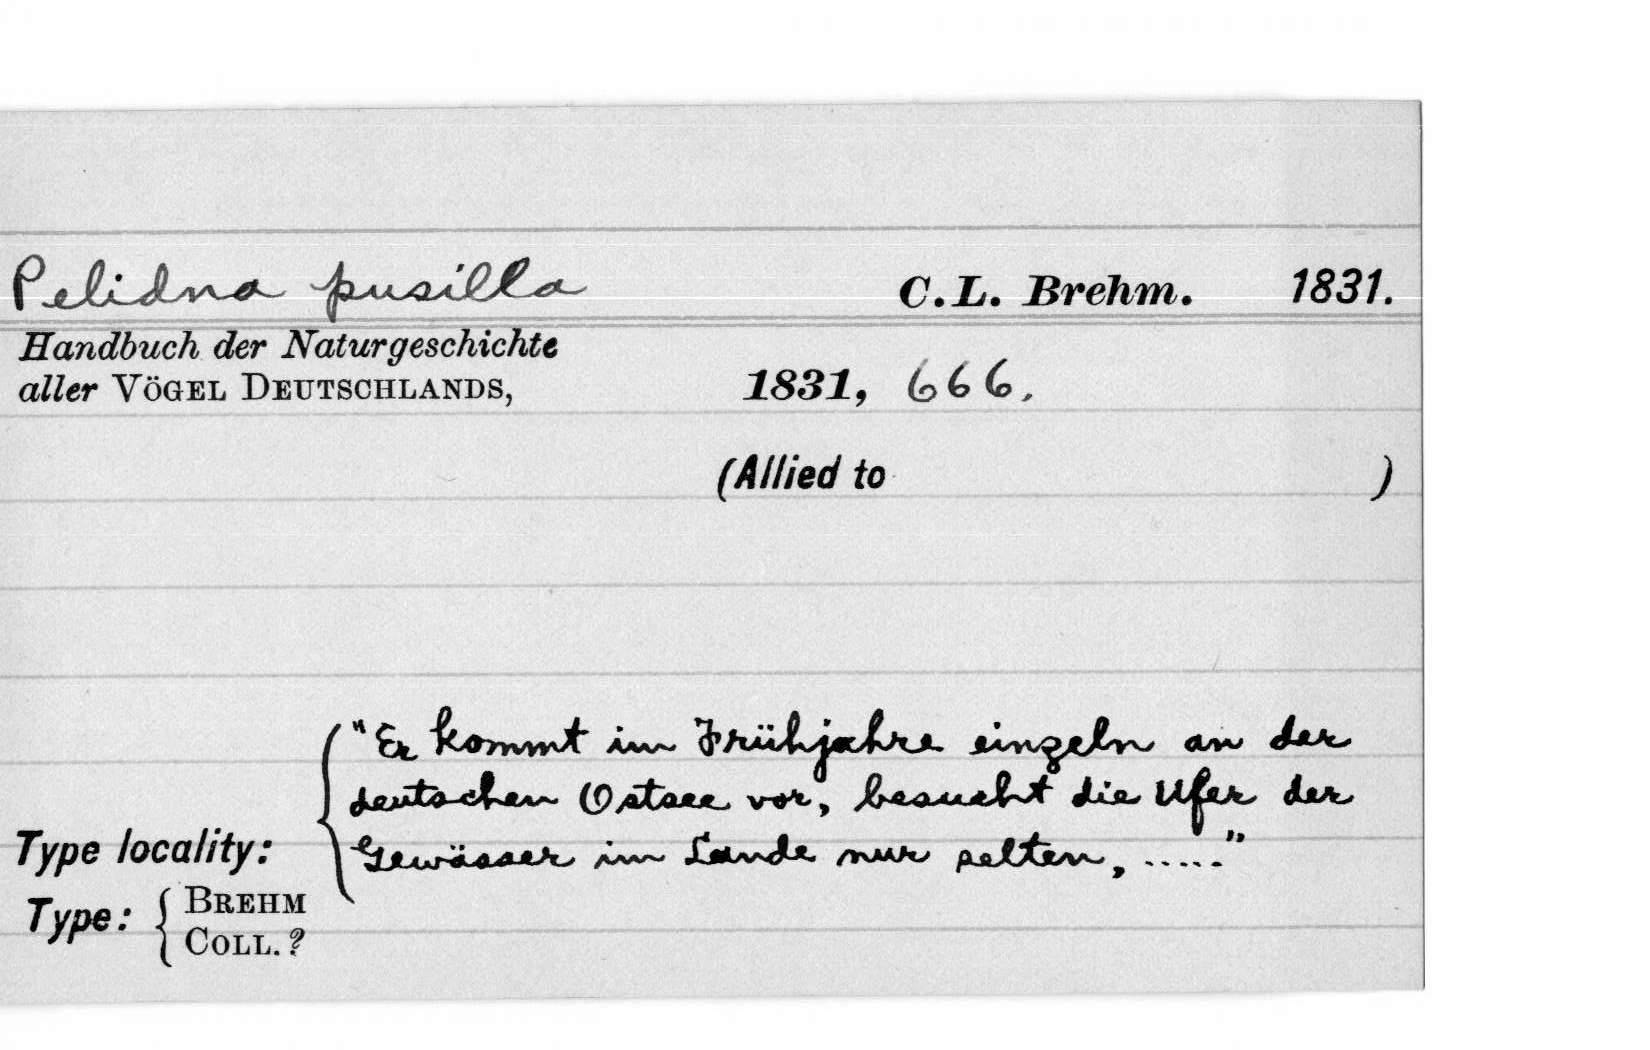 Pelidna pusilla C.L. Brehm. 1831.
Handbuch der Naturgeschichte
aller VÖGEL DEUTSCHLANDS, 1831, 666.
(Allied to )
"Er kommt im Frühjahre einzeln an der
deutschen Ostsee vor, besucht die Ufer der
Type locality: Gewässer im Lande nur selten, ....."
Type: { BREHM
COLL. ?